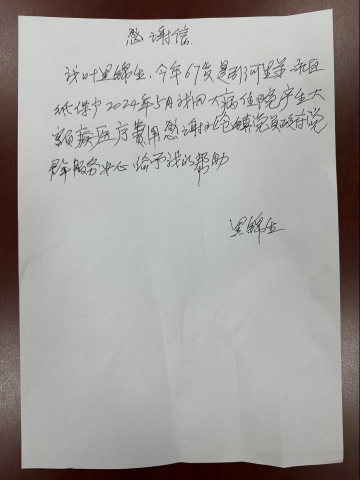 感谢信
我叫里锦生,今年67岁是彭河里美社区
低保户2024年5月我因大病住院产生大
额医疗费用感谢北沧镇党员政府党
群服务中心给予我的帮助
里锦生